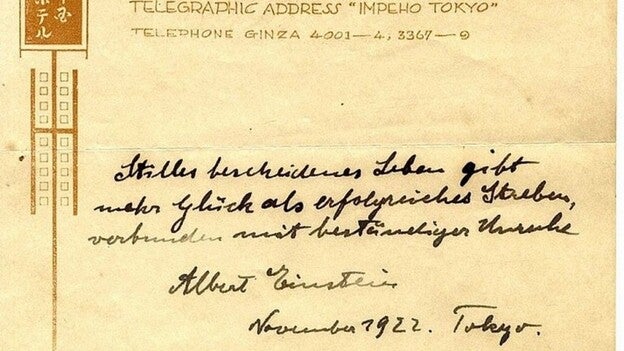 ホテル
TELEGRAPHIC ADDRESS "IMPEHO TOKYO"
TELEPHONE GINZA 4001—4, 3367—9
Stilles bescheidenes Leben gibt
mehr Glück als erfolgreiches Streben,
verbunden mit beständiger Unruhe
Albert Einstein
November 1922. Tokyo.